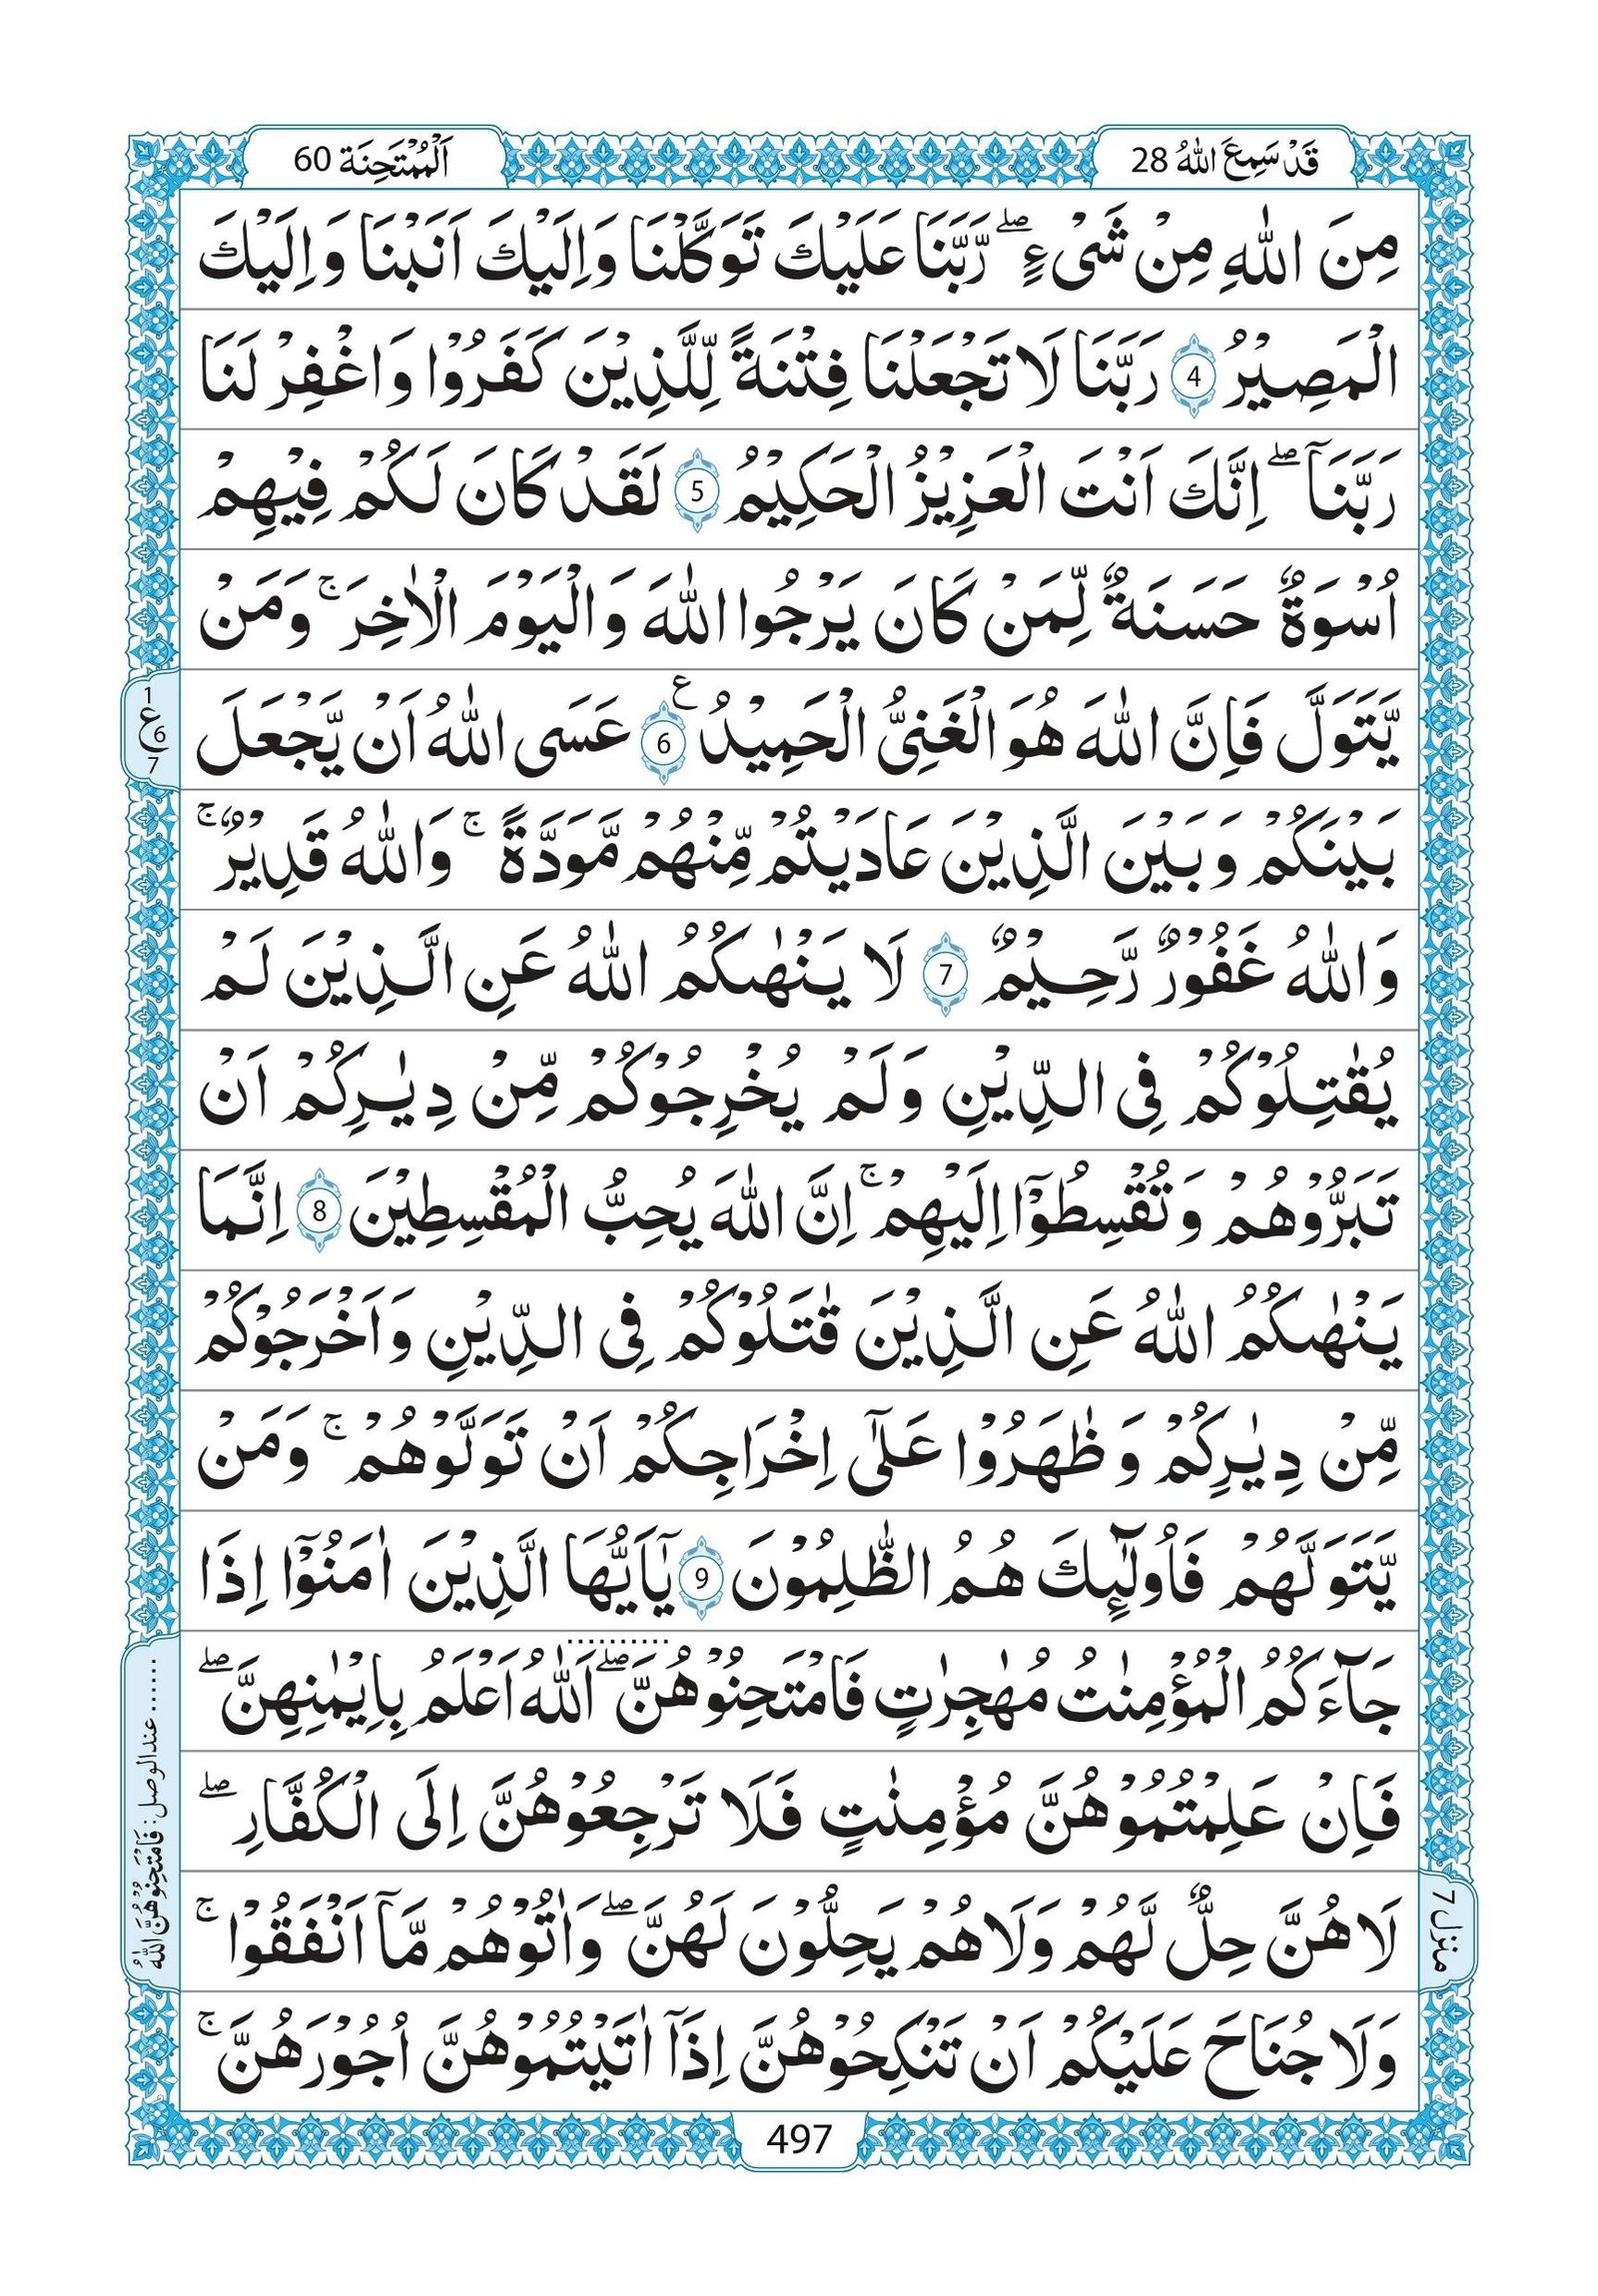 قَدْ سَمِعَ اللهُ 28
اَلْمُمْتَحِنَة 60
مِنَ اللّٰهِ مِنْ شَىْءٍ ۖ رَّبَّنَا عَلَيْكَ تَوَكَّلْنَا وَاِلَيْكَ اَنَبْنَا وَاِلَيْكَ
الْمَصِيْرُ 4 رَبَّنَا لَا تَجْعَلْنَا فِتْنَةً لِّلَّذِيْنَ كَفَرُوْا وَاغْفِرْ لَنَا
رَبَّنَآ ۖ اِنَّكَ اَنْتَ الْعَزِيْزُ الْحَكِيْمُ 5 لَقَدْ كَانَ لَكُمْ فِيْهِمْ
اُسْوَةٌ حَسَنَةٌ لِّمَنْ كَانَ يَرْجُوا اللّٰهَ وَالْيَوْمَ الْاٰخِرَ ۚ وَمَنْ
يَّتَوَلَّ فَاِنَّ اللّٰهَ هُوَ الْغَنِىُّ الْحَمِيْدُ ع 6 عَسَى اللّٰهُ اَنْ يَّجْعَلَ
بَيْنَكُمْ وَبَيْنَ الَّذِيْنَ عَادَيْتُمْ مِّنْهُمْ مَّوَدَّةً ۚ وَاللّٰهُ قَدِيْرٌ ۚ
وَاللّٰهُ غَفُوْرٌ رَّحِيْمٌ 7 لَا يَنْهٰىكُمُ اللّٰهُ عَنِ الَّذِيْنَ لَمْ
يُقٰتِلُوْكُمْ فِى الدِّيْنِ وَلَمْ يُخْرِجُوْكُمْ مِّنْ دِيٰرِكُمْ اَنْ
تَبَرُّوْهُمْ وَتُقْسِطُوْٓا اِلَيْهِمْ ۚ اِنَّ اللّٰهَ يُحِبُّ الْمُقْسِطِيْنَ 8 اِنَّمَا
يَنْهٰىكُمُ اللّٰهُ عَنِ الَّذِيْنَ قٰتَلُوْكُمْ فِى الدِّيْنِ وَاَخْرَجُوْكُمْ
مِّنْ دِيٰرِكُمْ وَظٰهَرُوْا عَلٰٓى اِخْرَاجِكُمْ اَنْ تَوَلَّوْهُمْ ۚ وَمَنْ
يَّتَوَلَّهُمْ فَاُولٰٓئِكَ هُمُ الظّٰلِمُوْنَ 9 يٰٓاَيُّهَا الَّذِيْنَ اٰمَنُوْٓا اِذَا
جَآءَكُمُ الْمُؤْمِنٰتُ مُهٰجِرٰتٍ فَامْتَحِنُوْهُنَّ ۖ اَللّٰهُ اَعْلَمُ بِاِيْمٰنِهِنَّ ۖ
فَاِنْ عَلِمْتُمُوْهُنَّ مُؤْمِنٰتٍ فَلَا تَرْجِعُوْهُنَّ اِلَى الْكُفَّارِ ۖ
لَا هُنَّ حِلٌّ لَّهُمْ وَلَا هُمْ يَحِلُّوْنَ لَهُنَّ ۖ وَاٰتُوْهُمْ مَّآ اَنْفَقُوْا ۚ
وَلَا جُنَاحَ عَلَيْكُمْ اَنْ تَنْكِحُوْهُنَّ اِذَآ اٰتَيْتُمُوْهُنَّ اُجُوْرَهُنَّ ۚ
1
ع 6
7
...... عند الوصل: فَامْتَحِنُوْهُنَّ اللّٰهُ
منزل 7
497